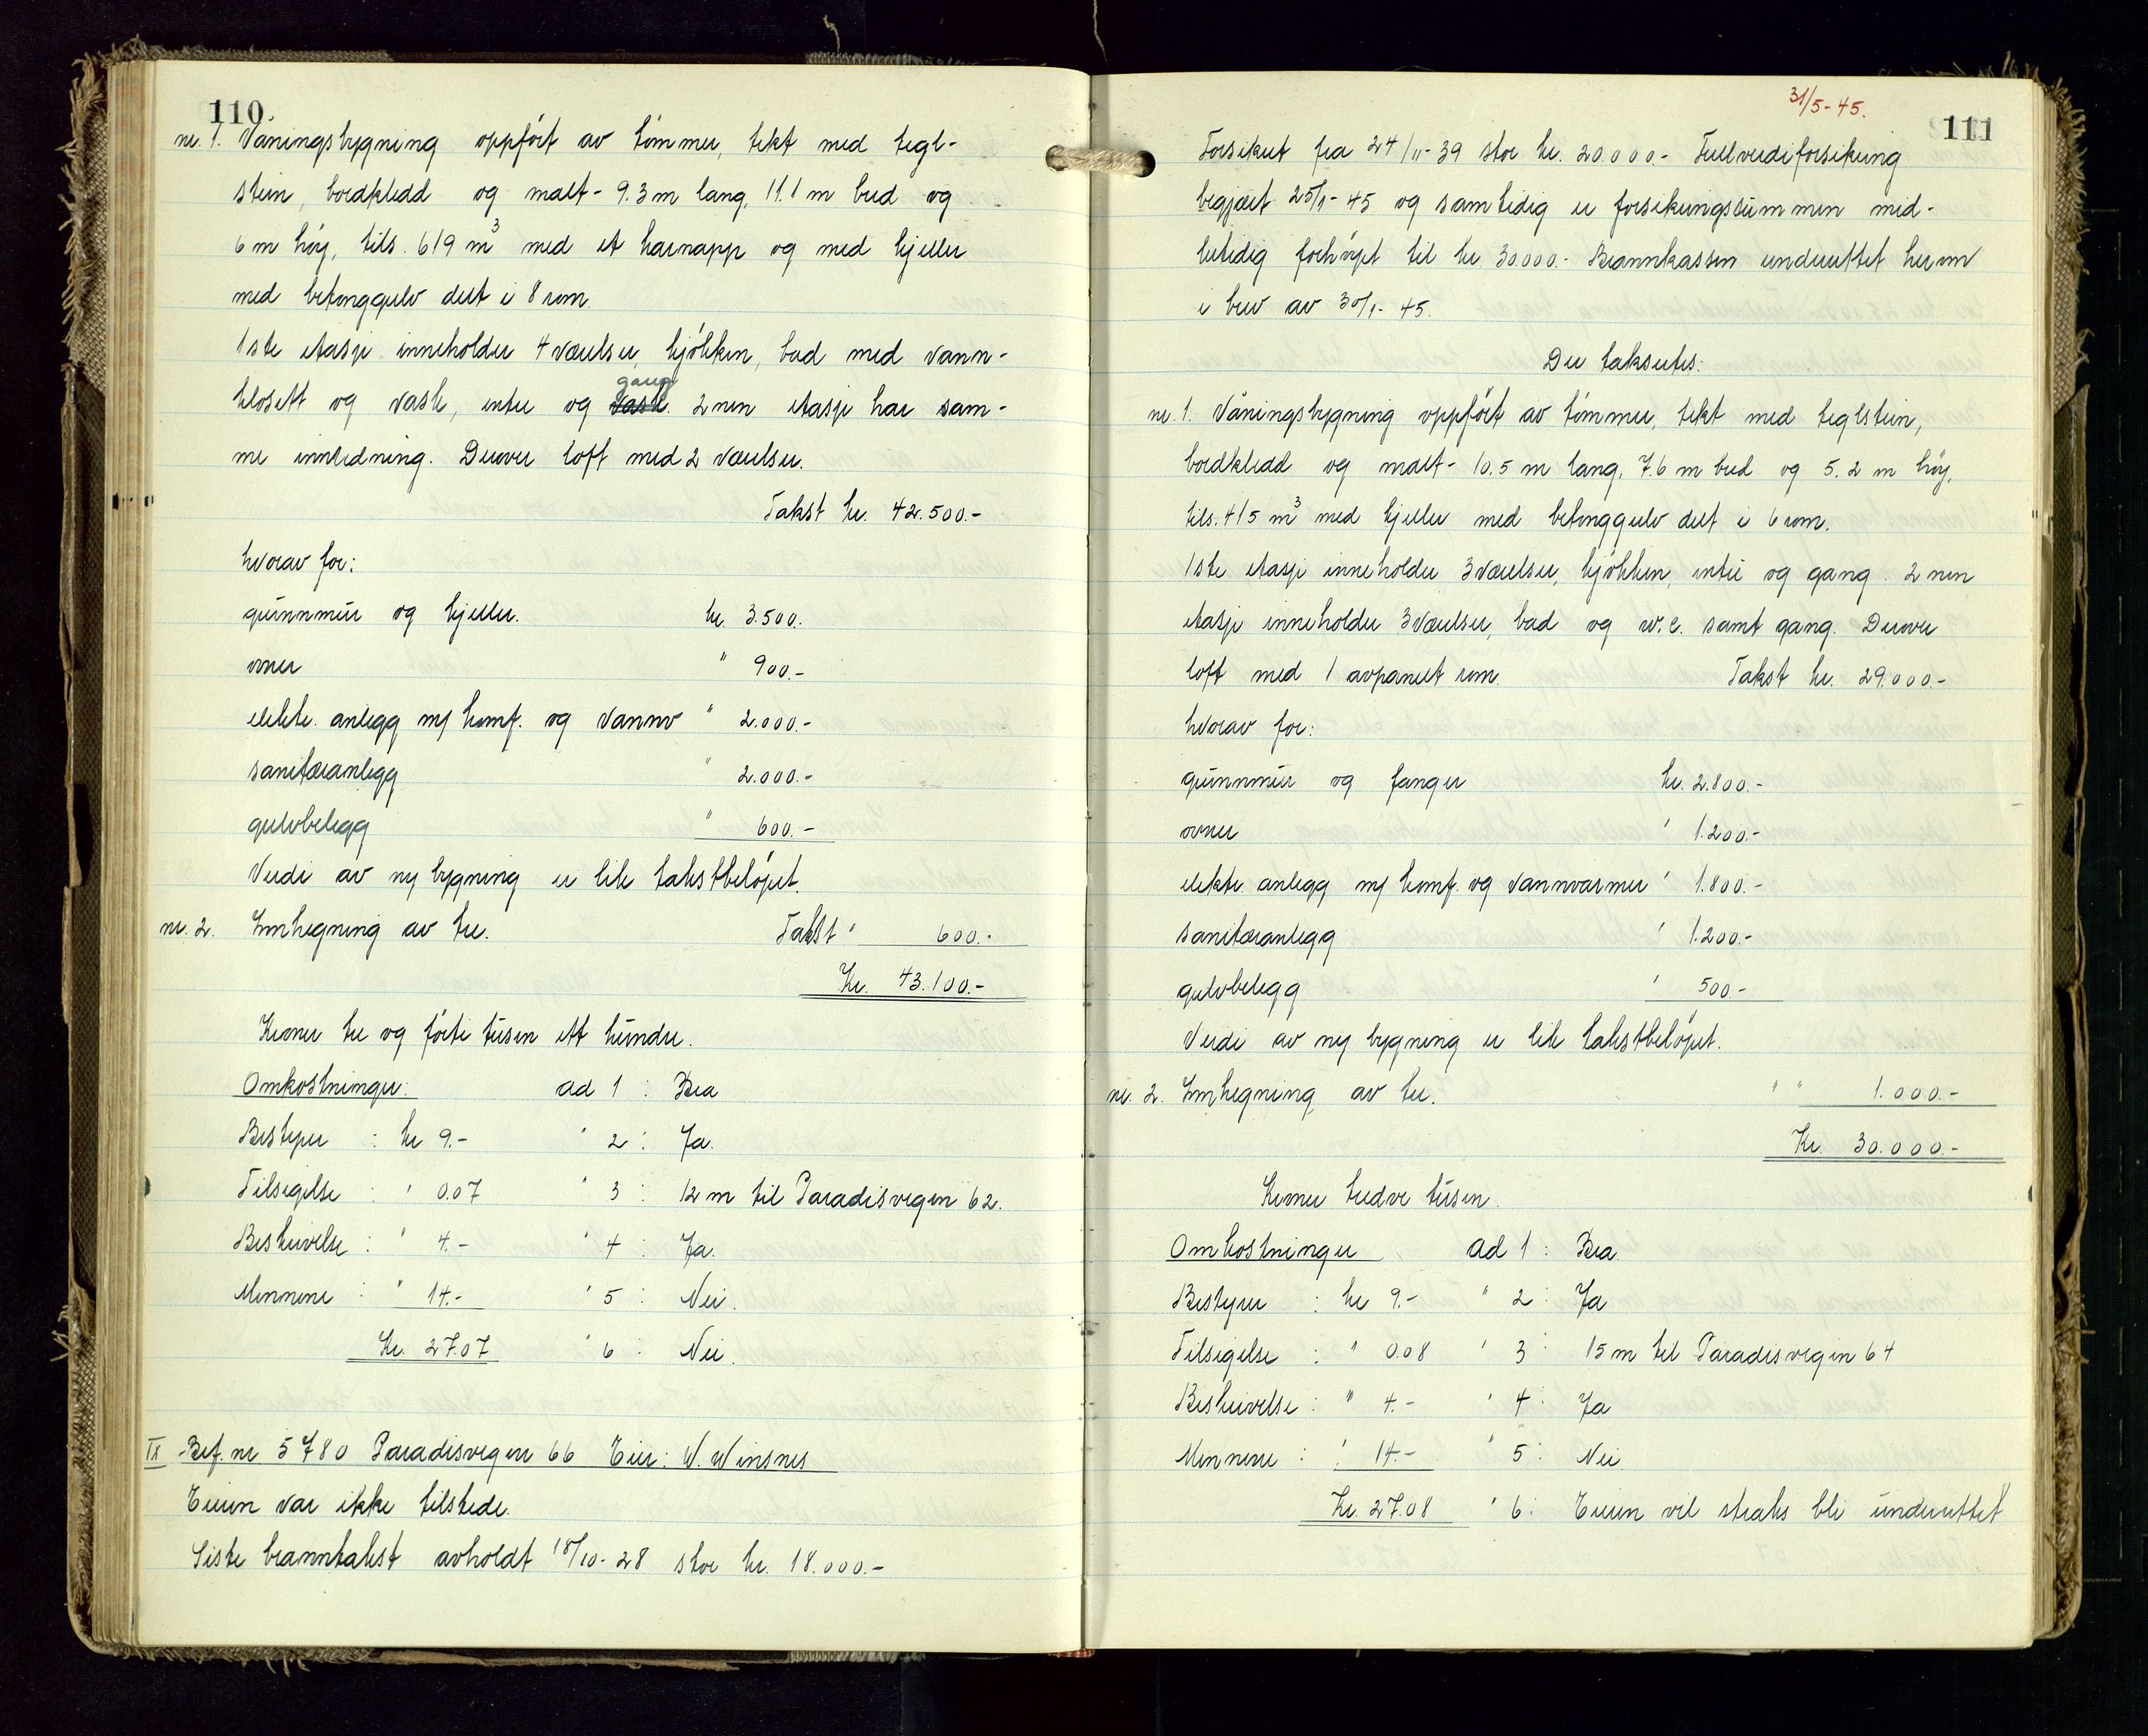 110
nr. 1. Våningsbygning oppført av tømmer, tekt med tegl-
stein, bordkledd og malt - 9.3 m lang, 11.1 m bred og
6 m høy, tils. 619 m3 med et karnapp og med kjeller
med betonggulv delt i 8 rom.
1ste etasje inneholder 4 værelser, kjøkken, bad med vann-
klosett og vask, entre og vask gang. 2nen etasje har sam-
me innredning. Derover loft med 2 værelser.
Takst kr. 42.500.-
hvorav for:
grunnmur og kjeller. kr. 3.500.
ovner " 900.-
elektr. anlegg m/ komf. og vannv " 2.000.-
sanitæranlegg " 2.000.-
gulvbelegg " 600.-
Verdi av ny bygning er lik takstbeløpet.
nr. 2. Innhegning av tre. Takst " 600.-
Kr. 43.100.-
Kroner tre og førti tusen ett hundre.
Omkostninger: ad 1 : Bra
Bestyrer : kr 9.- " 2 : Ja.
Tilsigelse : " 0.07 " 3 : 12 m til Paradisvegen 62.
Beskrivelse : " 4.- " 4 : Ja.
Mennene : " 14.- " 5 : Nei.
Kr. 27.07 " 6 : Nei.
IX Bef. nr 5780 Paradisvegen 66 Eier: W. Winsnes
Eieren var ikke tilstede.
Siste branntakst avholdt 18/10-28 stor kr. 18.000.-
31/5-45.
111
Forsikret fra 24/11-39 stor kr. 20.000.- Fullverdiforsikring
begjært 25/1-45 og samtidig er forsikringssummen mid-
lertidig forhøyet til kr 30.000.- Brannkassen underrettet herom
i brev av 30/1-45.
Der takseres:
nr. 1. Våningsbygning oppført av tømmer, tekt med teglstein,
bordkledd og malt - 10.5 m lang, 7.6 m bred og 5.2 m høy,
tils. 415 m3 med kjeller med betonggulv delt i 6 rom.
1ste etasje inneholder 3 værelser, kjøkken, entre og gang. 2nen
etasje inneholder 3 værelser, bad og w.c. samt gang. Derover
loft med 1 avpanelt rom. Takst kr. 29.000.-
hvorav for:
grunnmur og fanger kr. 2.800.-
ovner " 1.200.-
elektr. anlegg m/ komf. og vannvarmer " 1.800.-
sanitæranlegg " 1.200.-
gulvbelegg " 500.-
Verdi av ny bygning er lik takstbeløpet.
nr. 2. Innhegning av tre. " " 1.000.-
Kr. 30.000.-
Kroner tredve tusen.
Omkostninger ad 1 : Bra.
Bestyrer : kr 9.- " 2 : Ja
Tilsigelse : " 0.08 " 3 : 15 m til Paradisvegen 64
Beskrivelse : " 4.- " 4 : Ja
Mennene : " 14.- " 5 : Nei
Kr. 27.08 " 6 : Eieren vil straks bli underrettet